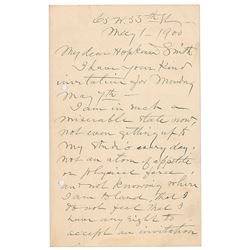 63 W. 55th St —
May 1 – 1900
My dear Hopkinson Smith
I have your kind
invitation for Monday
May 7th —
I am in such a
miserable state now,
not even getting up to
my studio every day,
not an atom of appetite
or physical force,
and not knowing where
I am to land, that I
do not feel that I
have any right to
accept an invitation